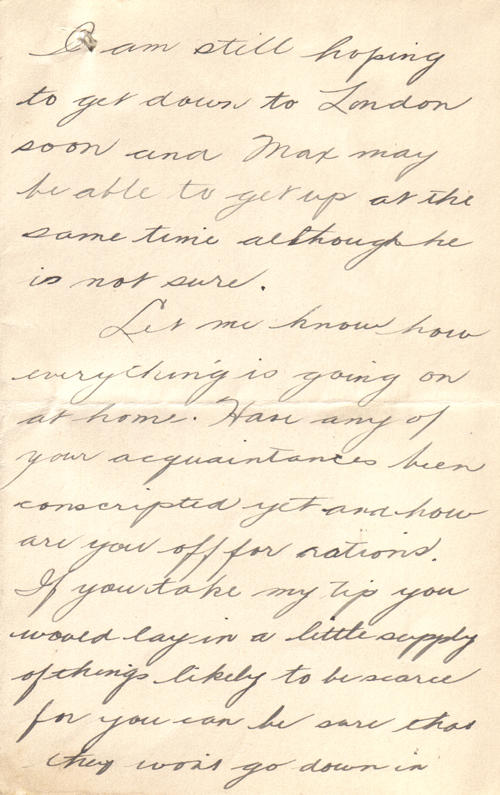 I am still hoping
to get down to London
soon and Max may
be able to get up at the
same time although he
is not sure.
Let me know how
everything is going on
at home. Have any of
your acquaintances been
conscripted yet and how
are you off for rations.
If you take my tip you
would lay in a little supply
of things likely to be scarce
for you can be sure that
they won't go down in